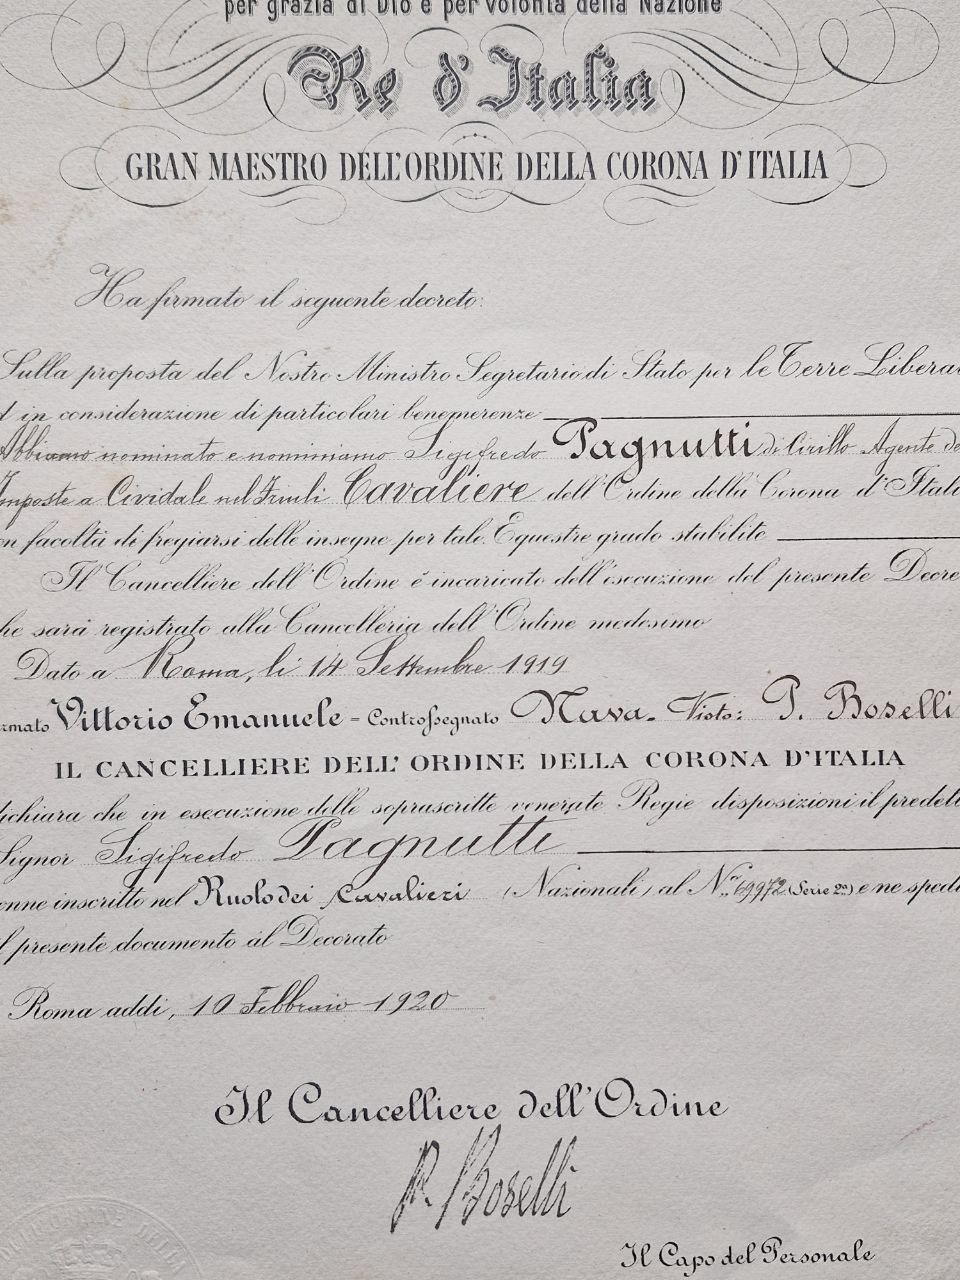 per grazia di Dio e per volontà della Nazione
Re d'Italia
GRAN MAESTRO DELL'ORDINE DELLA CORONA D'ITALIA
Ha firmato il seguente decreto:
Sulla proposta del Nostro Ministro Segretario di Stato per le Terre Libera
d in considerazione di particolari benemerenze
Abbiamo nominato e nominiamo Sigifredo Pagnutti di Cirillo Agente de
Imposte a Cividale nel Friuli Cavaliere dell'Ordine della Corona d'Itali
on facoltà di fregiarsi delle insegne per tale Equestre grado stabilite
Il Cancelliere dell'Ordine è incaricato dell'esecuzione del presente Decre
che sarà registrato alla Cancelleria dell'Ordine medesimo
Dato a Roma, li 14 Settembre 1919
rmato Vittorio Emanuele = Controssegnato Nava. Visto: P. Boselli
IL CANCELLIERE DELL'ORDINE DELLA CORONA D'ITALIA
dichiara che in esecuzione delle soprascritte venerate Regie disposizioni il predett
Signor Sigifredo Pagnutti
enne inscritto nel Ruolo dei Cavalieri (Nazionali) al N.º 69972 (Serie 2ª) e ne spedi
il presente documento al Decorato
Roma addì, 10 Febbraio 1920
Il Cancelliere dell'Ordine
P. Boselli
Il Capo del Personale